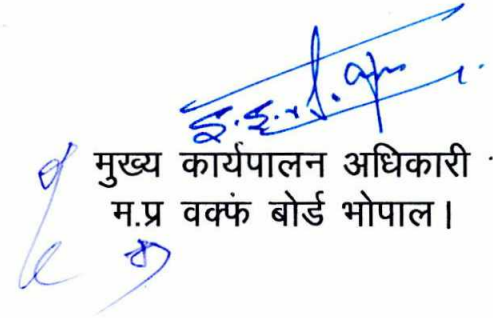 मुख्य कार्यपालन अधिकारी
म.प्र वक्फं बोर्ड भोपाल।